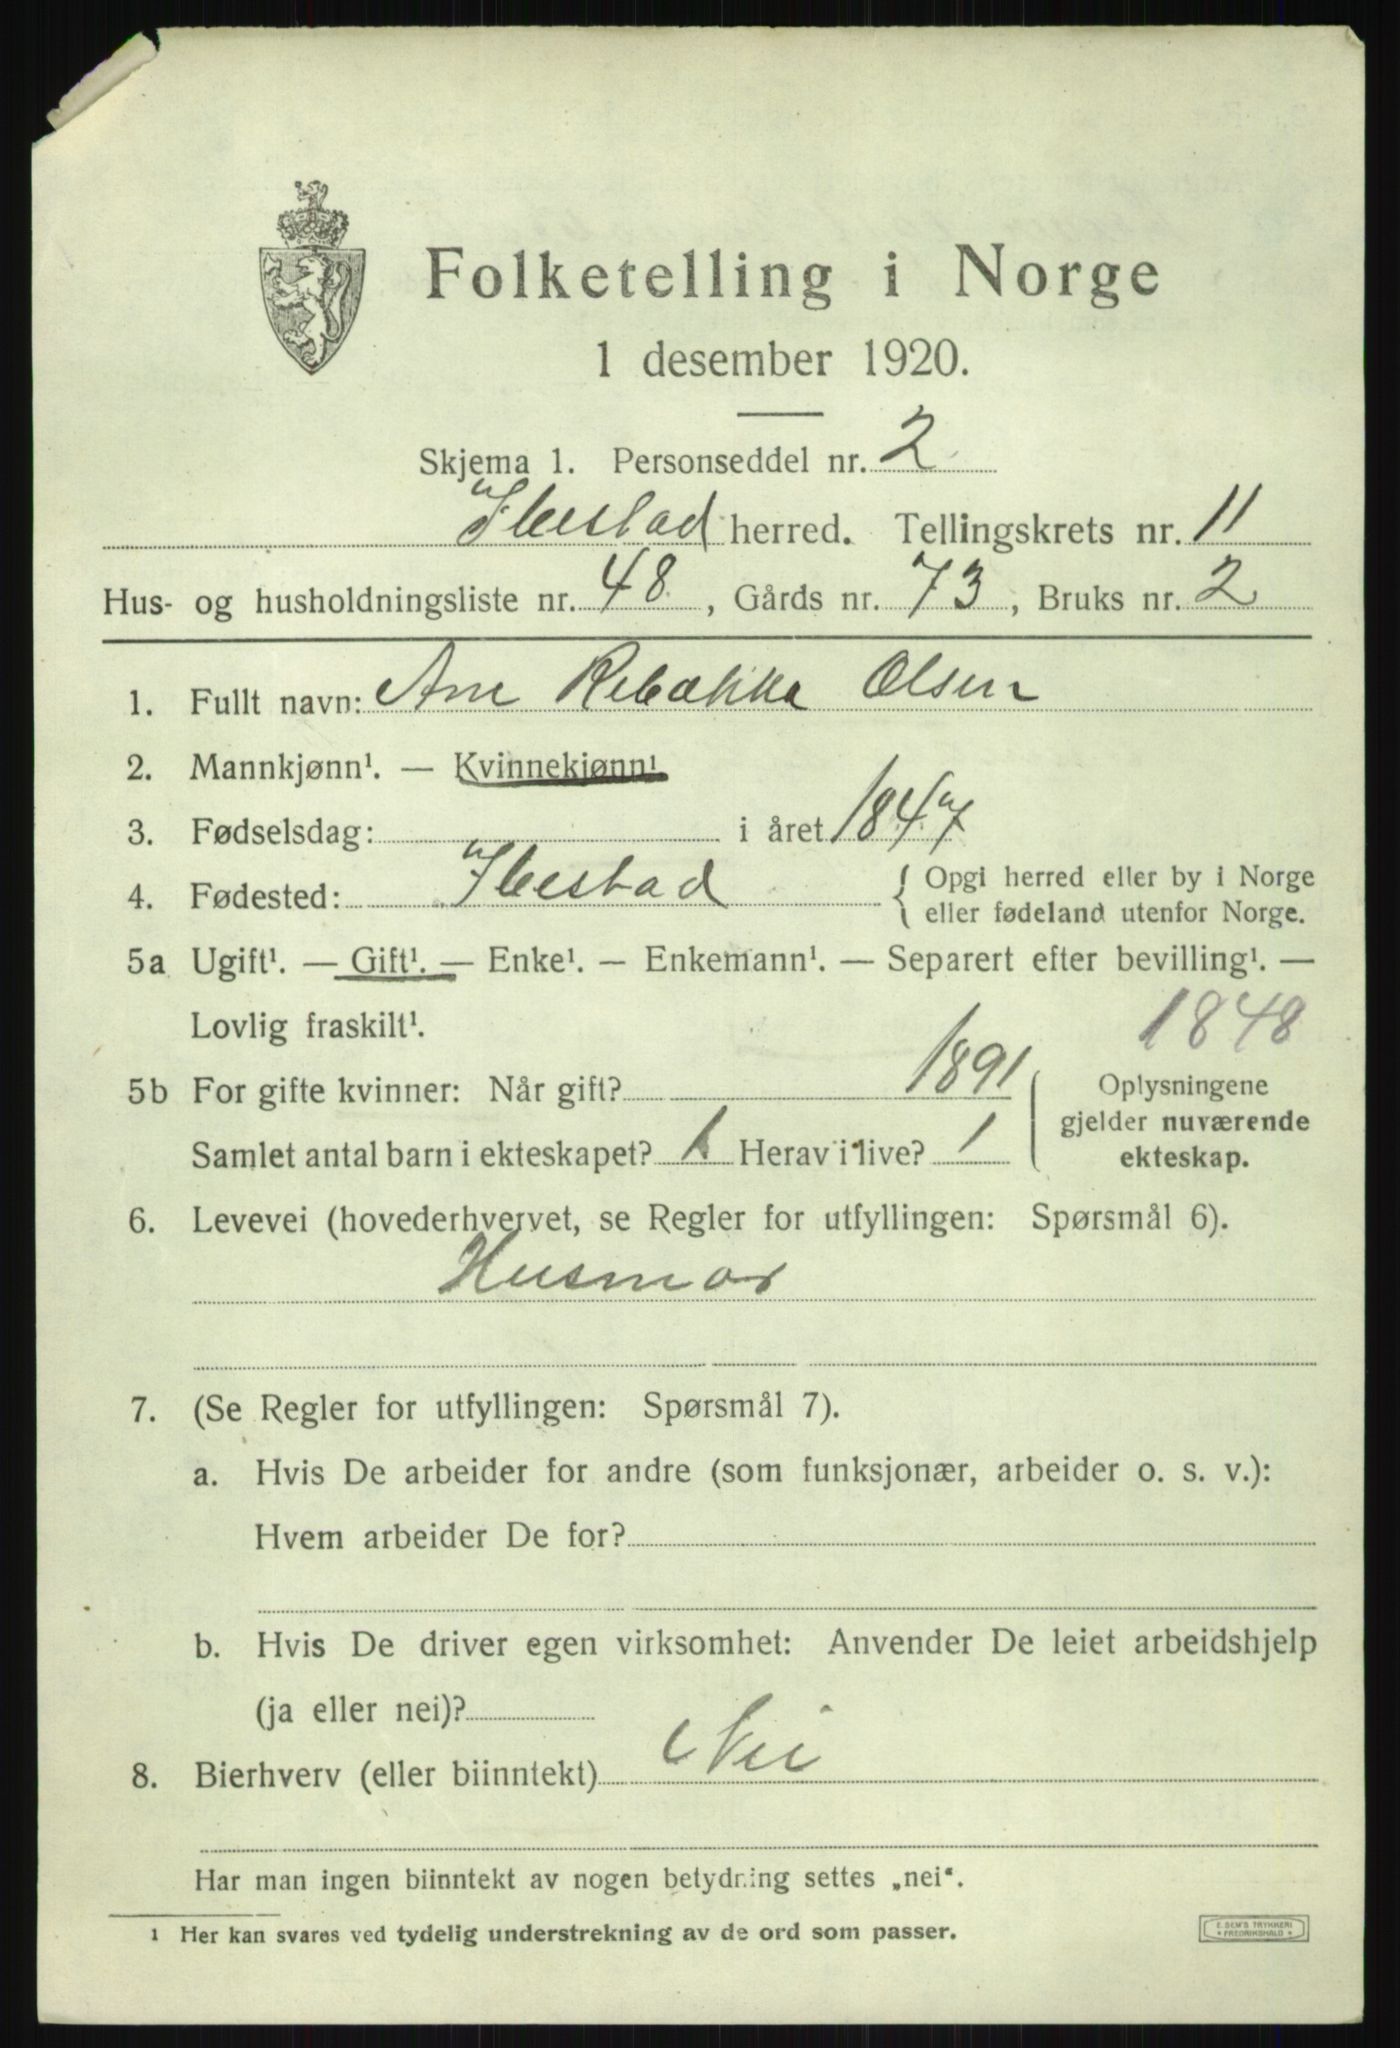 Folketelling i Norge
1 desember 1920.
Skjema 1. Personseddel nr. 2
Ibestad herred. Tellingskrets nr. 11
Hus- og husholdningsliste nr. 48, Gårds nr. 73, Bruks nr. 2
1. Fullt navn: Ane Rebækka Olsen
2. Mannkjønn¹. — Kvinnekjønn¹
3. Fødselsdag: i året 1847
4. Fødested: Ibestad { Opgi herred eller by i Norge
eller fødeland utenfor Norge.
5a Ugift¹. — Gift¹. — Enke¹. — Enkemann¹. — Separert efter bevilling¹. —
Lovlig fraskilt¹. 1848
5b For gifte kvinner: Når gift? 1891 Oplysningene
gjelder nuværende
Samlet antal barn i ekteskapet? 1 Herav i live? 1 ekteskap.
6. Levevei (hovederhvervet, se Regler for utfyllingen: Spørsmål 6).
Husmor
7. (Se Regler for utfyllingen: Spørsmål 7).
a. Hvis De arbeider for andre (som funksjonær, arbeider o. s. v.):
Hvem arbeider De for?
b. Hvis De driver egen virksomhet: Anvender De leiet arbeidshjelp
(ja eller nei)?
8. Bierhverv (eller biinntekt) Nei
Har man ingen biinntekt av nogen betydning settes „nei“.
¹ Her kan svares ved tydelig understrekning av de ord som passer.
E. SEM'S TRYKKERI
* FREDRIKSHALD *